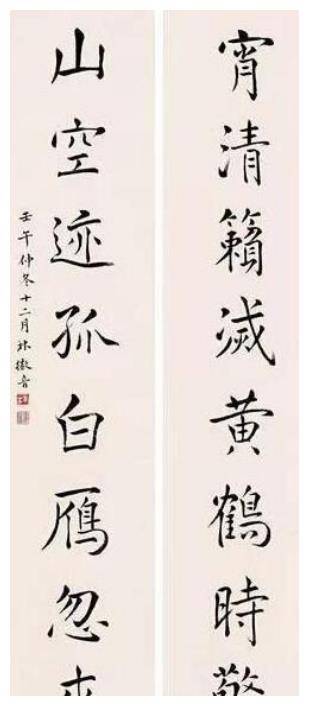 宵清籟滅黄鶴時
山空迹孤白鴈忽
壬午仲冬十二月林徽音